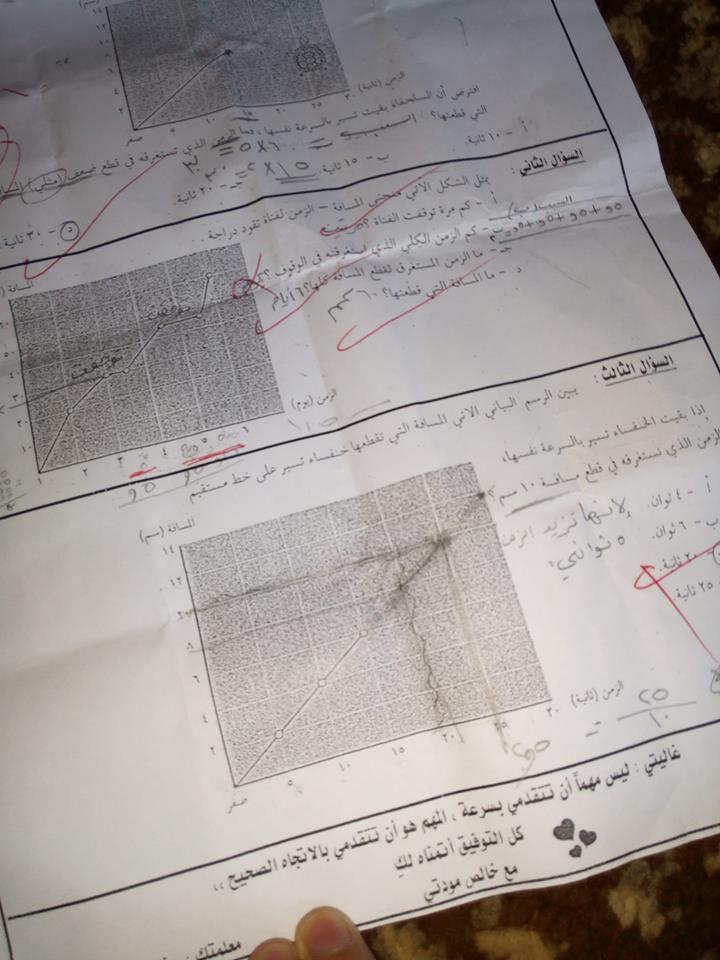 (سم)
١٢
١٠
٨
٦
٤
٢
صفر
٥
١٠
١٥
٢٠
٢٥
٣٠
الزمن (ثانية)
افترض أن السلحفاة بقيت تسير بالسرعة نفسها، فما الزمن الذي تستغرقه في قطع ضعف (مثلي) المسافة
التي قطعتها؟
أ - ١٠ ثانية.
ب - ١٥ ثانية.
جـ - ٢٠ ثانية.
٣٠ ثانية
السؤال الثاني :
يمثل الشكل الآتي منحنى المسافة – الزمن لفتاة تقود دراجة.
أ - كم مرة توقفت الفتاة ؟
ب - كم الزمن الكلي الذي استغرقته في الوقوف ؟
جـ - ما الزمن المستغرق لقطع المسافة كلها؟ ٦ أيام
د - ما المسافة التي قطعتها؟ ٦٠ كم
توقفت
توقفت
الزمن (يوم)
السؤال الثالث :
يبين الرسم البياني الآتي المسافة التي تقطعها خنفساء تسير على خط مستقيم
إذا بقيت الخنفساء تسير بالسرعة نفسها،
الزمن الذي تستغرقه في قطع مسافة ١٠ سم ؟
أ - ٤ ثوان.
ب - ٦ ثوان.
٢٠ ثانية.
٢٥ ثانية.
لأنها تزيد الزمن
٥ ثواني
المسافة (سم)
١٤
١٢
٨
٦
٤
٢
صفر
٥
١٠
١٥
٢٠
٢٥
٣٠
الزمن (ثانية)
٢٥
١٠
=
غاليتي : ليس مهماً أن تتقدمي بسرعة ، المهم هو أن تتقدمي بالاتجاه الصحيح ،،
كل التوفيق أتمناه لكِ
مع خالص مودتي
معلمتك :